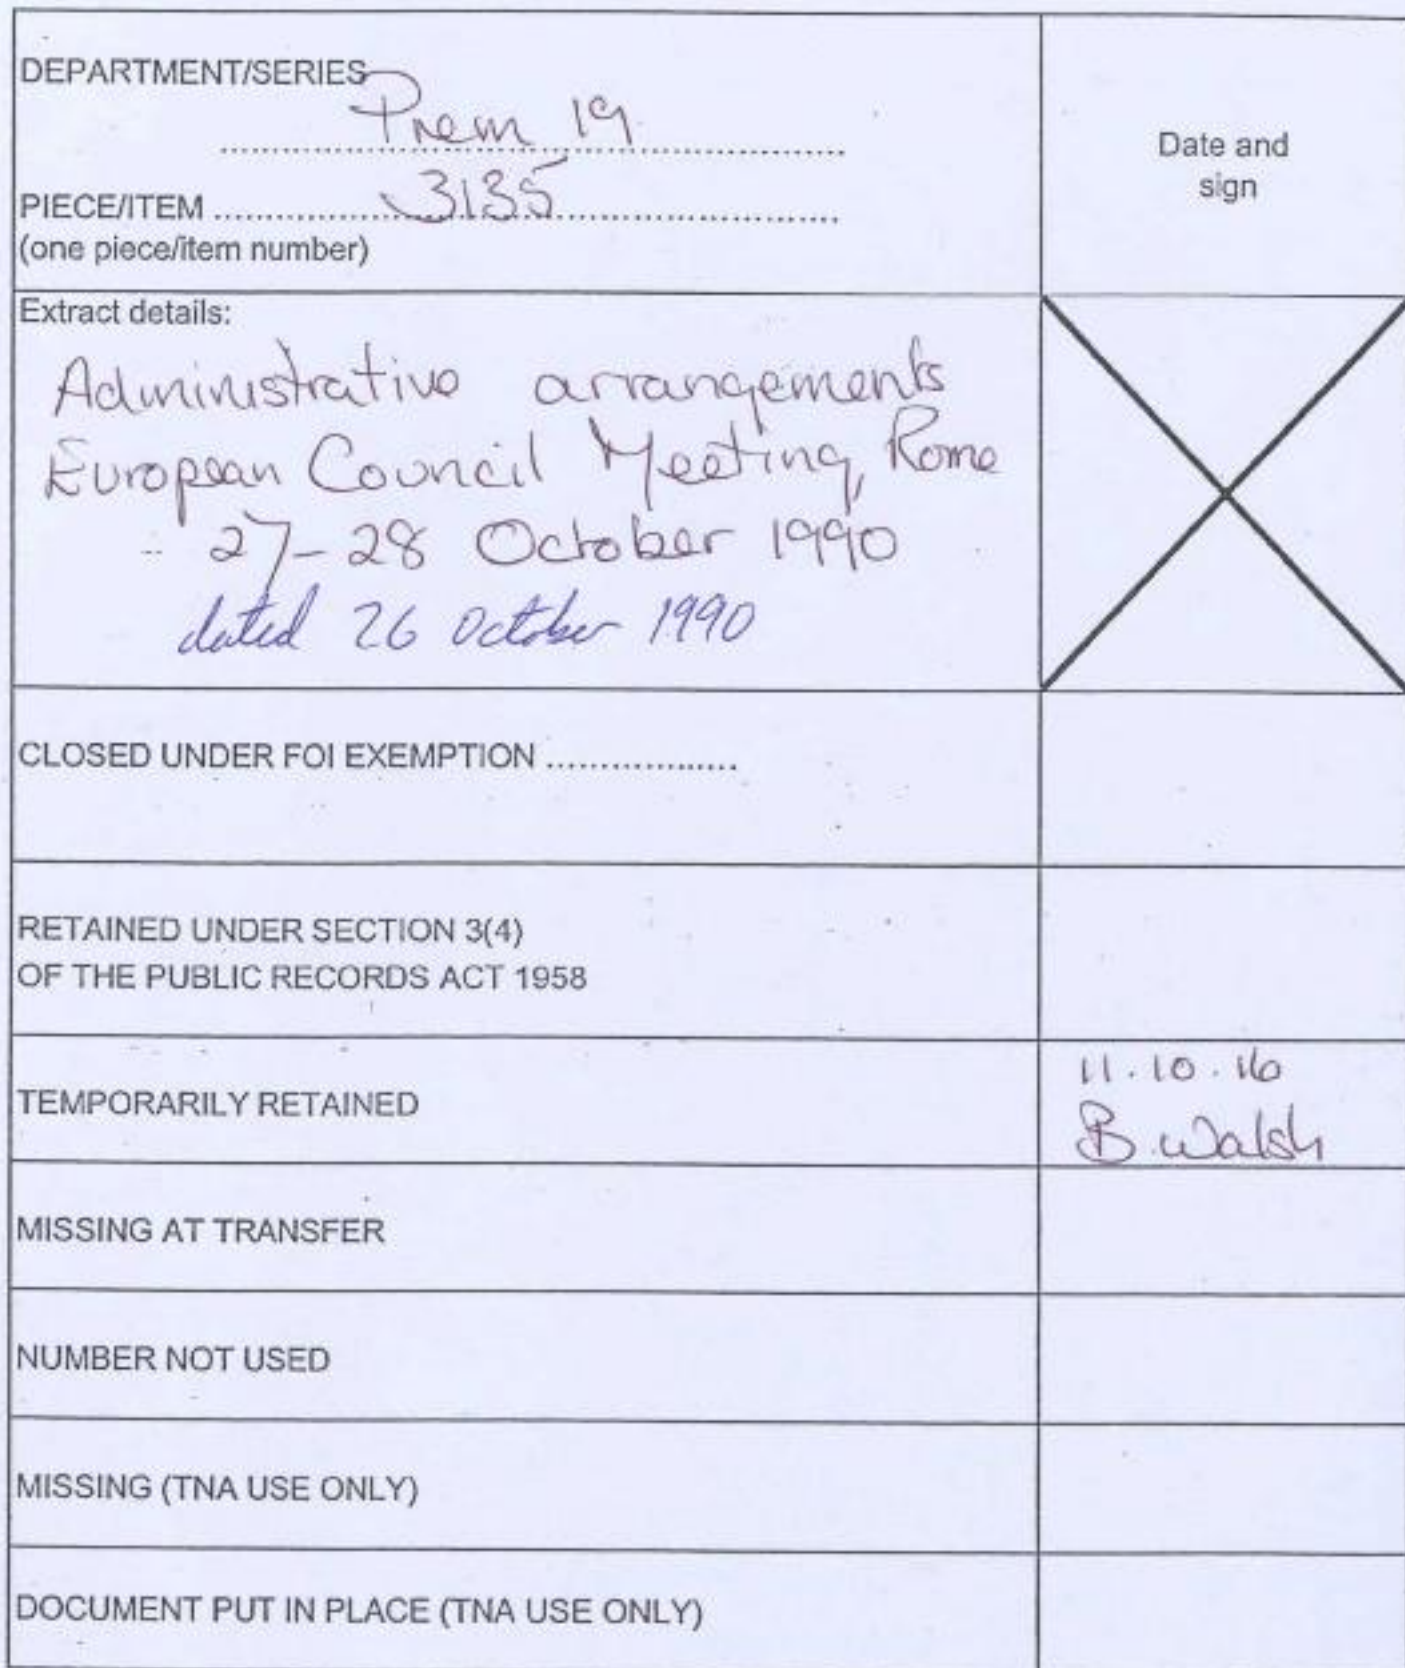 DEPARTMENT/SERIES
Prem 19
PIECE/ITEM 3135
(one piece/item number)
Date and
sign
Extract details:
Administrative arrangements
European Council Meeting, Rome
27-28 October 1990
dated 26 October 1990
CLOSED UNDER FOI EXEMPTION
RETAINED UNDER SECTION 3(4)
OF THE PUBLIC RECORDS ACT 1958
TEMPORARILY RETAINED
11.10.16
B. Walsh
MISSING AT TRANSFER
NUMBER NOT USED
MISSING (TNA USE ONLY)
DOCUMENT PUT IN PLACE (TNA USE ONLY)